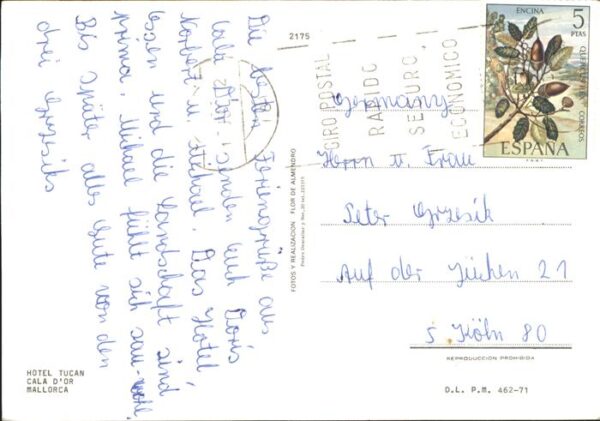 Die besten Feriengrüße aus
Cala D'or senden euch Doris
Norbert u. Michael. Das Hotel
Essen und die Landschaft sind
prima. Michael fühlt sich sau-wohl.
Bis später alles Gute von den
drei Grzesiks
HOTEL TUCAN
CALA D'OR
MALLORCA
2175
FOTOS Y REALIZACION FLOR DE ALMENDRO
GIRO POSTAL
RAPIDO
SEGURO
ECONOMICO
ENCINA
5
PTAS
CORREOS
ESPAÑA
Germany
Herrn u. Frau
Peter Grzesik
Auf der Jüchen 21
5 Köln 80
REPRODUCCION PROHIBIDA
D.L. P.M. 462-71